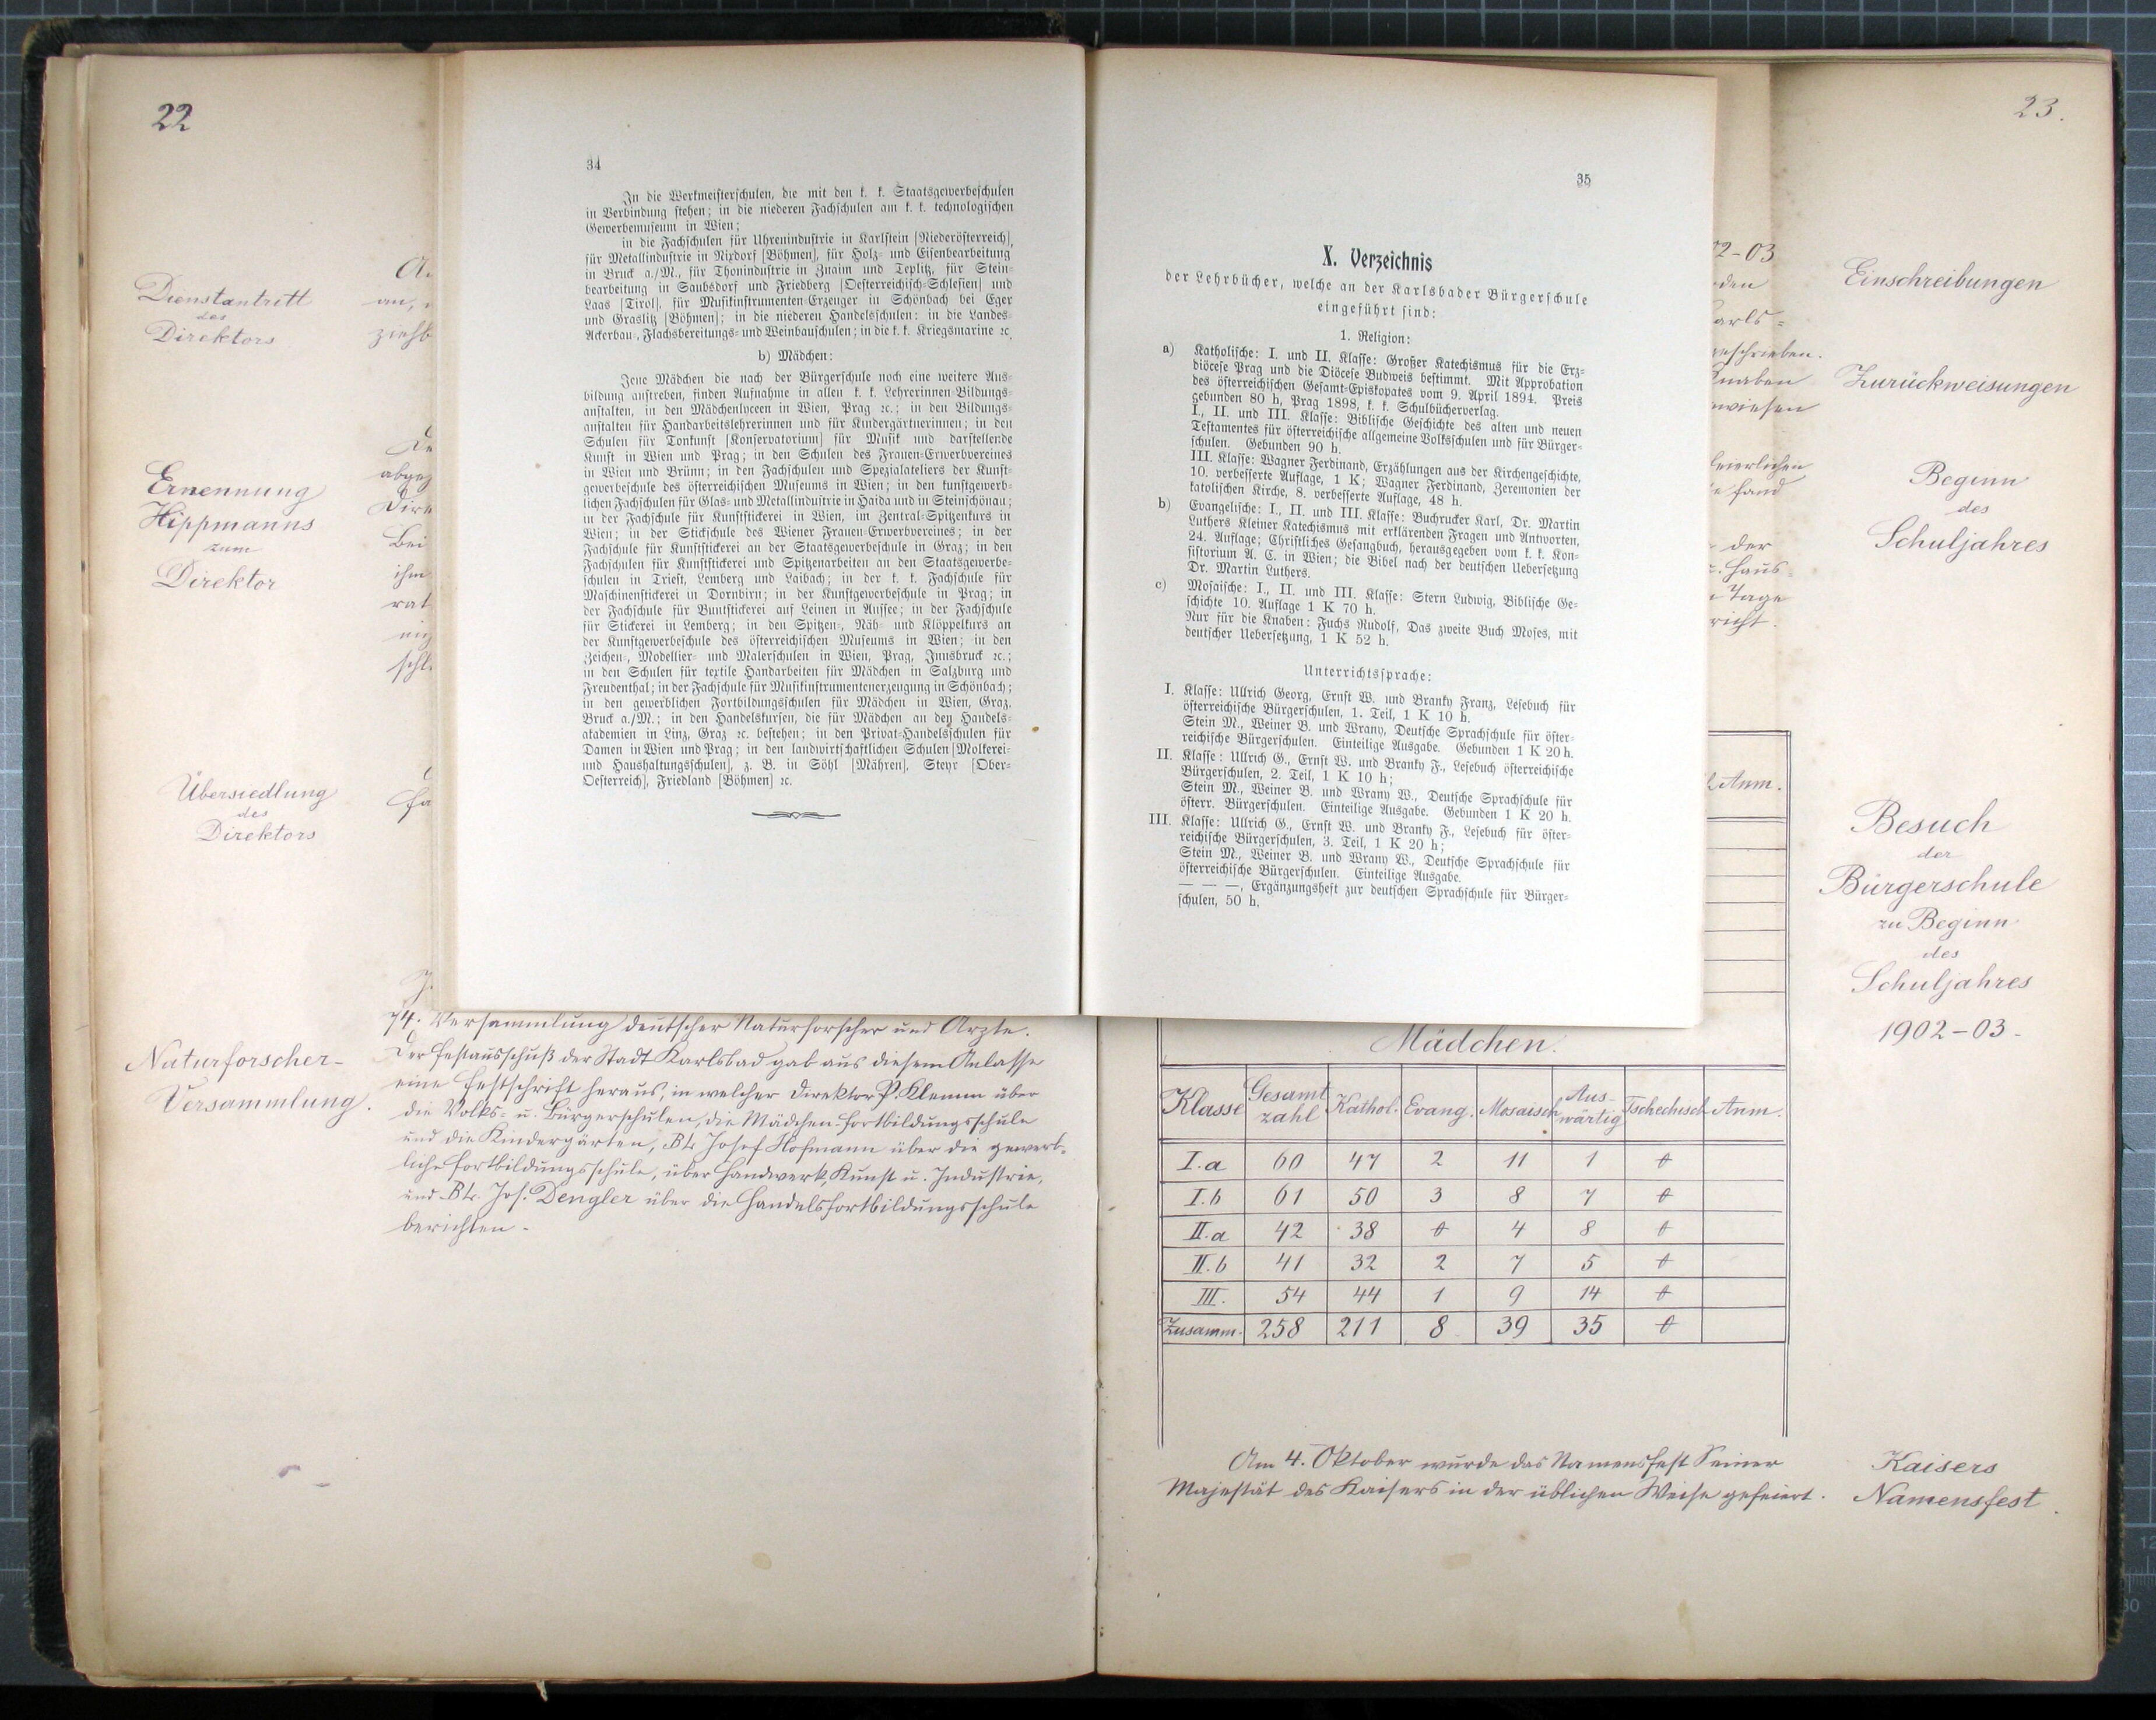 22
Dienstantritt
des
Direktors
an,
ziehb
Ernennung
Hippmanns
zum
Direktor
abgez
Dire
Bei
ihm
rat
schl.
Übersiedlung
des
Direktors
74. Versammlung deutscher Naturforscher und Ärzte.
Naturforscher-
Versammlung.
Der Festausschuß der Stadt Karlsbad gab aus diesem Anlasse
eine Festschrift heraus, in welcher Direktor P. Klemm über
die Volks- u. Bürgerschulen, die Mädchen-Fortbildungsschule
und die Kindergärten, Blr Josef Hofmann über die gewerb-
liche Fortbildungsschule, über Handwerk, Kunst u. Industrie,
und Blr. Jos. Dengler über die Handelsfortbildungsschule
berichten.
34
In die Werkmeisterschulen, die mit den k. k. Staatsgewerbeschulen
in Verbindung stehen; in die niederen Fachschulen am k. k. technologischen
Gewerbemuseum in Wien;
in die Fachschulen für Uhrenindustrie in Karlstein [Niederösterreich],
für Metallindustrie in Nixdorf [Böhmen], für Holz- und Eisenbearbeitung
in Bruck a./M., für Thonindustrie in Znaim und Teplitz, für Stein-
bearbeitung in Saubsdorf und Friedberg [Oesterreichisch-Schlesien] und
Laas [Tirol], für Musikinstrumenten-Erzeuger in Schönbach bei Eger
und Graslitz [Böhmen]; in die niederen Handelsschulen: in die Landes-
Ackerbau-, Flachsbereitungs- und Weinbauschulen; in die k. k. Kriegsmarine ꝛc.
b) Mädchen:
Jene Mädchen die nach der Bürgerschule noch eine weitere Aus-
bildung anstreben, finden Aufnahme in allen k. k. Lehrerinnen-Bildungs-
anstalten, in den Mädchenlyceen in Wien, Prag ꝛc.; in den Bildungs-
anstalten für Handarbeitslehrerinnen und für Kindergärtnerinnen; in den
Schulen für Tonkunst [Konservatorium] für Musik und darstellende
Kunst in Wien und Prag; in den Schulen des Frauen-Erwerbvereines
in Wien und Brünn; in den Fachschulen und Spezialateliers der Kunst-
gewerbeschule des österreichischen Museums in Wien; in den kunstgewerb-
lichen Fachschulen für Glas- und Metallindustrie in Haida und in Steinschönau;
in der Fachschule für Kunststickerei in Wien, im Zentral-Spitzenkurs in
Wien; in der Stickschule des Wiener Frauen-Erwerbvereines; in der
Fachschule für Kunststickerei an der Staatsgewerbeschule in Graz; in den
Fachschulen für Kunststickerei und Spitzenarbeiten an den Staatsgewerbe-
schulen in Triest, Lemberg und Laibach; in der k. k. Fachschule für
Maschinenstickerei in Dornbirn; in der Kunstgewerbeschule in Prag; in
der Fachschule für Buntstickerei auf Leinen in Aussee; in der Fachschule
für Stickerei in Lemberg; in den Spitzen-, Näh- und Klöppelkurs an
der Kunstgewerbeschule des österreichischen Museums in Wien; in den
Zeichen-, Modellier- und Malerschulen in Wien, Prag, Innsbruck ꝛc.;
in den Schulen für textile Handarbeiten für Mädchen in Salzburg und
Freudenthal; in der Fachschule für Musikinstrumentenerzeugung in Schönbach;
in den gewerblichen Fortbildungsschulen für Mädchen in Wien, Graz.
Bruck a./M.; in den Handelskursen, die für Mädchen an den Handels-
akademien in Linz, Graz ꝛc. bestehen; in den Privat-Handelsschulen für
Damen in Wien und Prag; in den landwirtschaftlichen Schulen [Molkerei-
und Haushaltungsschulen], z. B. in Söhl [Mähren], Steyr [Ober-
Oesterreich], Friedland [Böhmen] ꝛc.
35
X. Verzeichnis
der Lehrbücher, welche an der Karlsbader Bürgerschule
eingeführt sind:
1. Religion:
a) Katholische: I. und II. Klasse: Großer Katechismus für die Erz-
diöcese Prag und die Diöcese Budweis bestimmt. Mit Approbation
des österreichischen Gesamt-Episkopates vom 9. April 1894. Preis
gebunden 80 h, Prag 1898, k. k. Schulbücherverlag.
I., II. und III. Klasse: Biblische Geschichte des alten und neuen
Testamentes für österreichische allgemeine Volksschulen und für Bürger-
schulen. Gebunden 90 h.
III. Klasse: Wagner Ferdinand, Erzählungen aus der Kirchengeschichte,
10. verbesserte Auflage, 1 K; Wagner Ferdinand, Zeremonien der
katolischen Kirche, 8. verbesserte Auflage, 48 h.
b) Evangelische: I., II. und III. Klasse: Buchrucker Karl, Dr. Martin
Luthers Kleiner Katechismus mit erklärenden Fragen und Antworten,
24. Auflage; Christliches Gesangbuch, herausgegeben vom k. k. Kon-
sistorium A. C. in Wien; die Bibel nach der deutschen Uebersetzung
Dr. Martin Luthers.
c) Mosaische: I., II. und III. Klasse: Stern Ludwig, Biblische Ge-
schichte 10. Auflage 1 K 70 h.
Nur für die Knaben: Fuchs Rudolf, Das zweite Buch Moses, mit
deutscher Uebersetzung, 1 K 52 h.
Unterrichtssprache:
I. Klasse: Ullrich Georg, Ernst W. und Branky Franz, Lesebuch für
österreichische Bürgerschulen, 1. Teil, 1 K 10 h.
Stein M., Weiner B. und Wrany, Deutsche Sprachschule für öster-
reichische Bürgerschulen. Einteilige Ausgabe. Gebunden 1 K 20 h.
II. Klasse: Ullrich G., Ernst W. und Branky F., Lesebuch österreichische
Bürgerschulen, 2. Teil, 1 K 10 h;
Stein M., Weiner B. und Wrany W., Deutsche Sprachschule für
österr. Bürgerschulen. Einteilige Ausgabe. Gebunden 1 K 20 h.
III. Klasse: Ullrich G., Ernst W. und Branky F., Lesebuch für öster-
reichische Bürgerschulen, 3. Teil, 1 K 20 h;
Stein M., Weiner B. und Wrany W., Deutsche Sprachschule für
österreichische Bürgerschulen. Einteilige Ausgabe.
— — —, Ergänzungsheft zur deutschen Sprachschule für Bürger-
schulen, 50 h.
23.
02-03
den
arls-
geschrieben.
Knaben
wiesen
feierlichen
fand
der
Haus-
Tage
richt.
Anm.
Einschreibungen
Zurückweisungen
Beginn
des
Schuljahres
Besuch
der
Bürgerschule
zu Beginn
des
Schuljahres
1902-03.
Mädchen.
Klasse Gesamtzahl Kathol. Evang. Mosaisch Auswärtig Tschechisch Anm.
I.a 60 47 2 11 1 0
I.b 61 50 3 8 7 0
II.a 42 38 0 4 8 0
II.b 41 32 2 7 5 0
III. 54 44 1 9 14 0
Zusamm. 258 211 8 39 35 0
Am 4. Oktober wurde das Namensfest Seiner
Majestät des Kaisers in der üblichen Weise gefeiert.
Kaisers
Namensfest